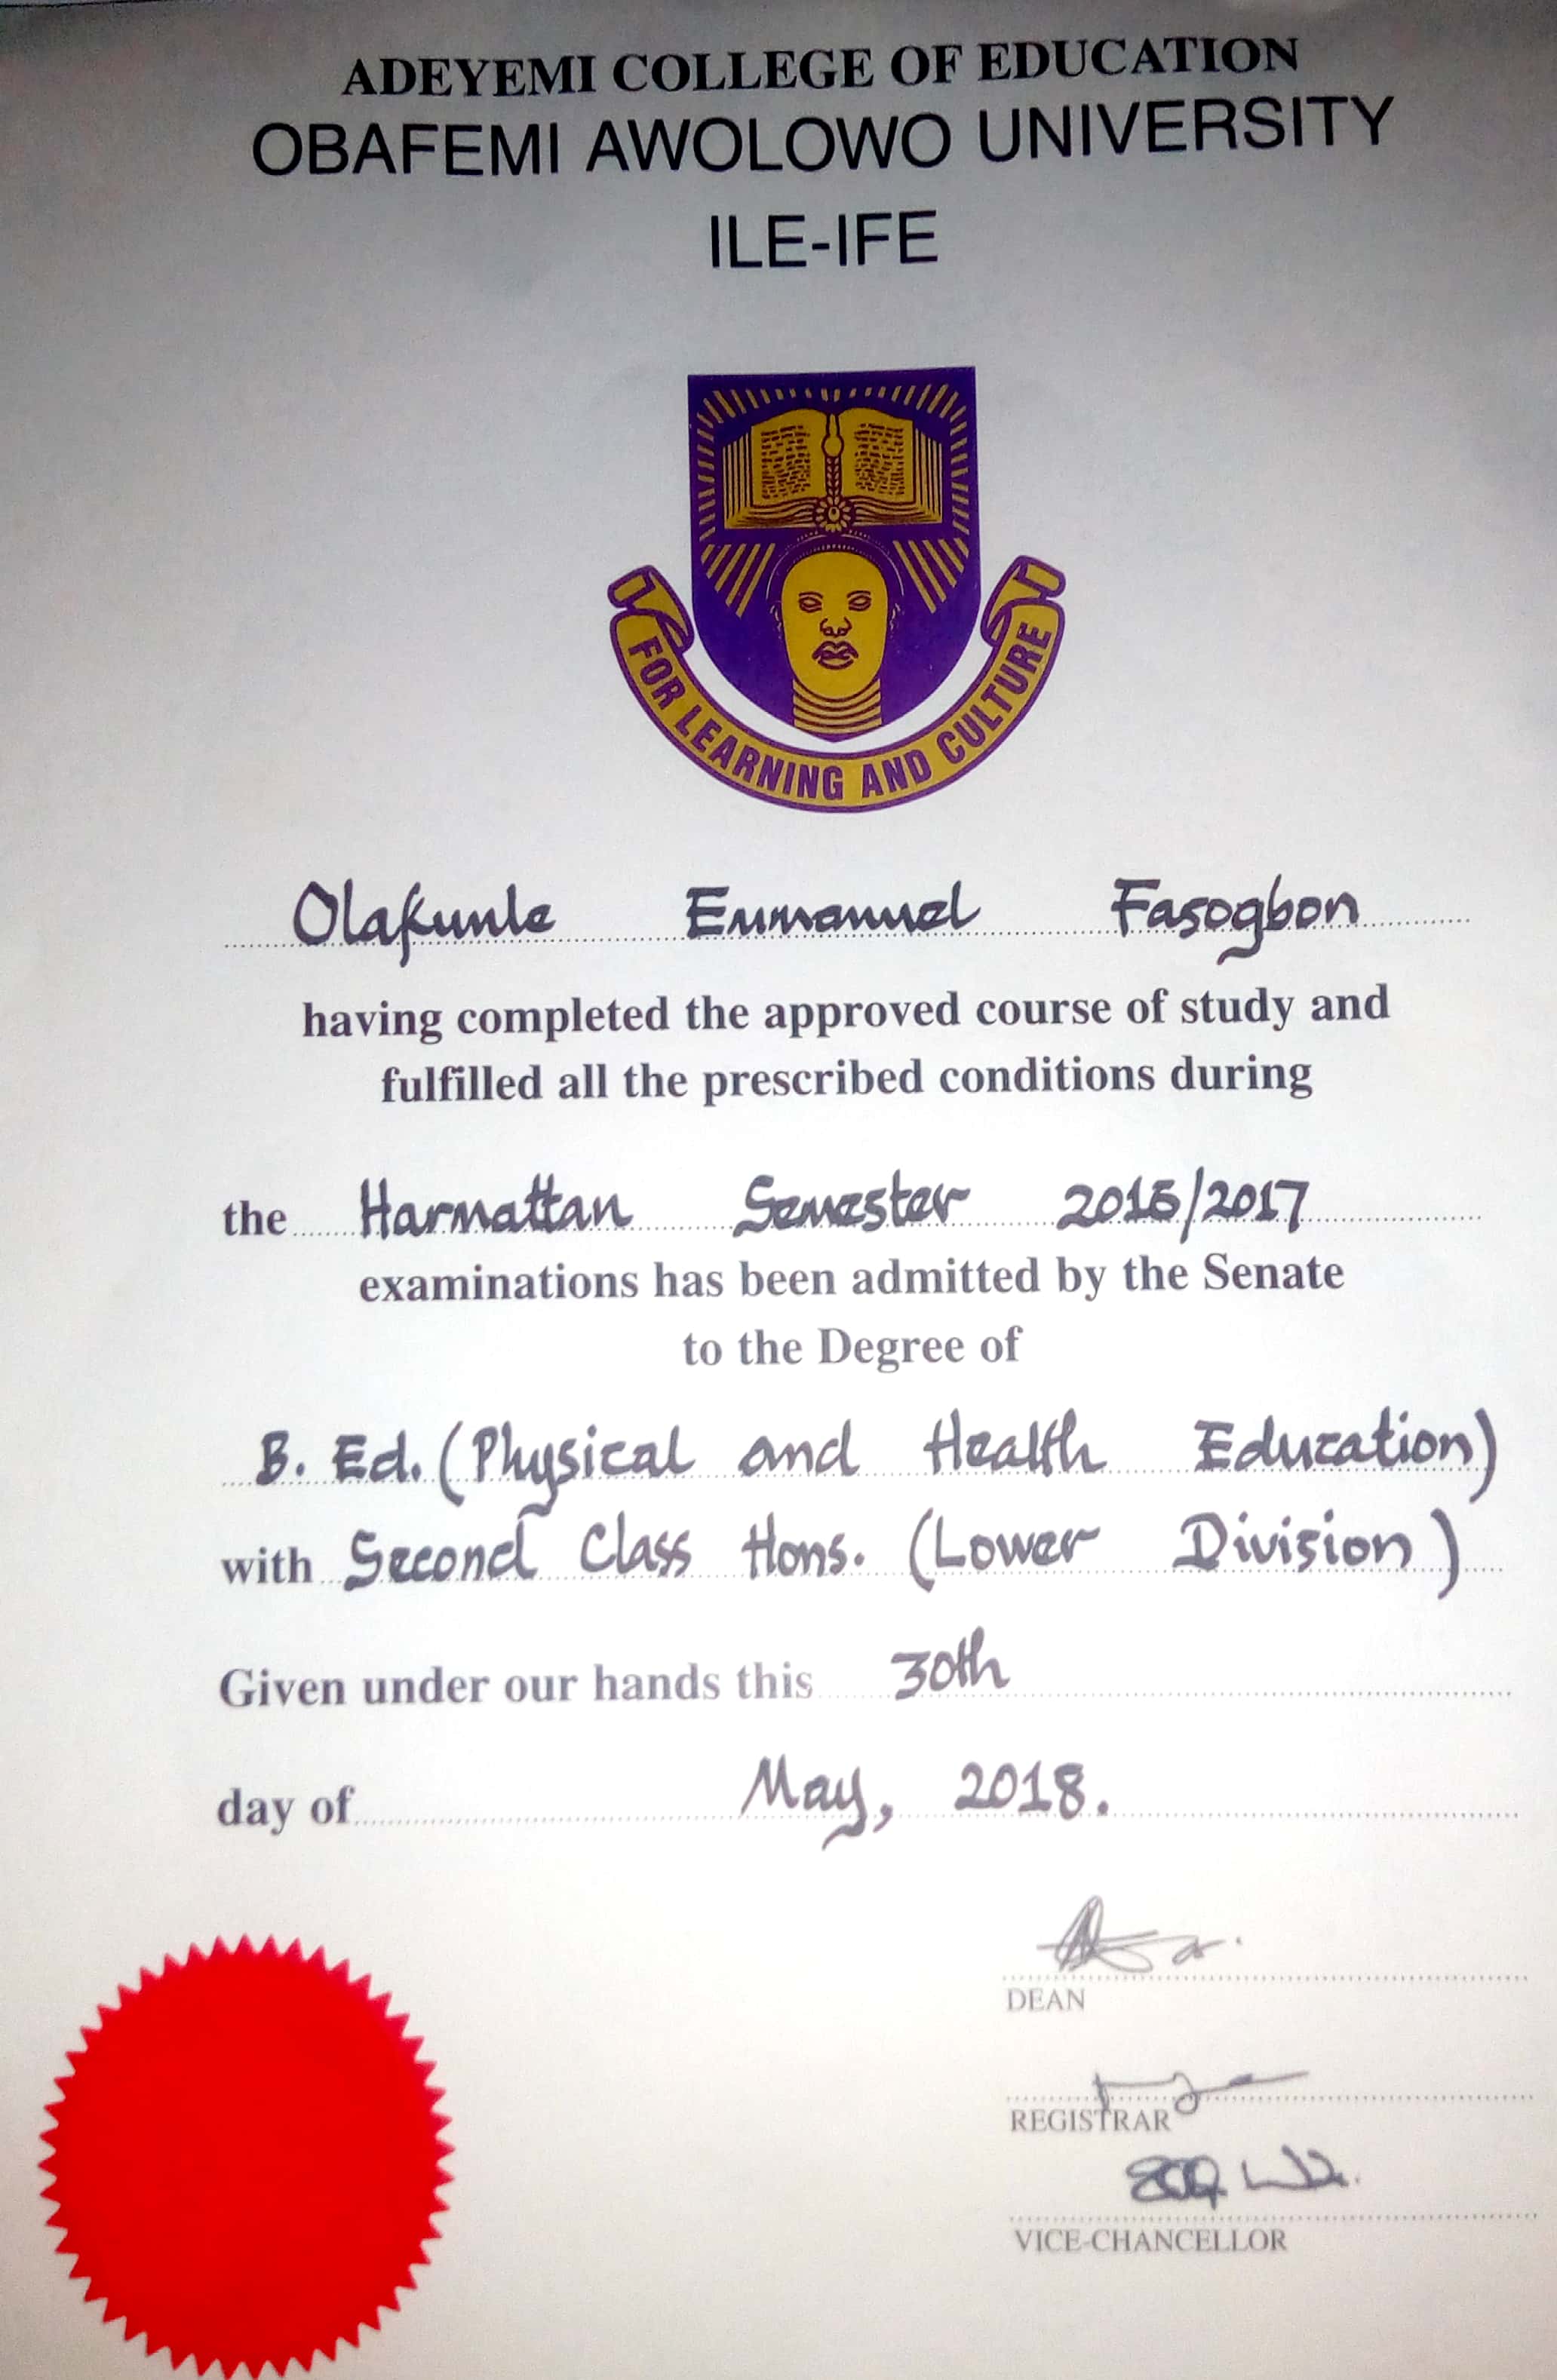 ADEYEMI COLLEGE OF EDUCATION
OBAFEMI AWOLOWO UNIVERSITY
ILE-IFE
FOR LEARNING AND CULTURE
Olakunle Emmanuel Fasogbon
having completed the approved course of study and
fulfilled all the prescribed conditions during
the Harmattan Semester 2016/2017
examinations has been admitted by the Senate
to the Degree of
B. Ed. (Physical and Health Education)
with Second Class Hons. (Lower Division)
Given under our hands this 30th
day of May, 2018.
DEAN
REGISTRAR
VICE-CHANCELLOR